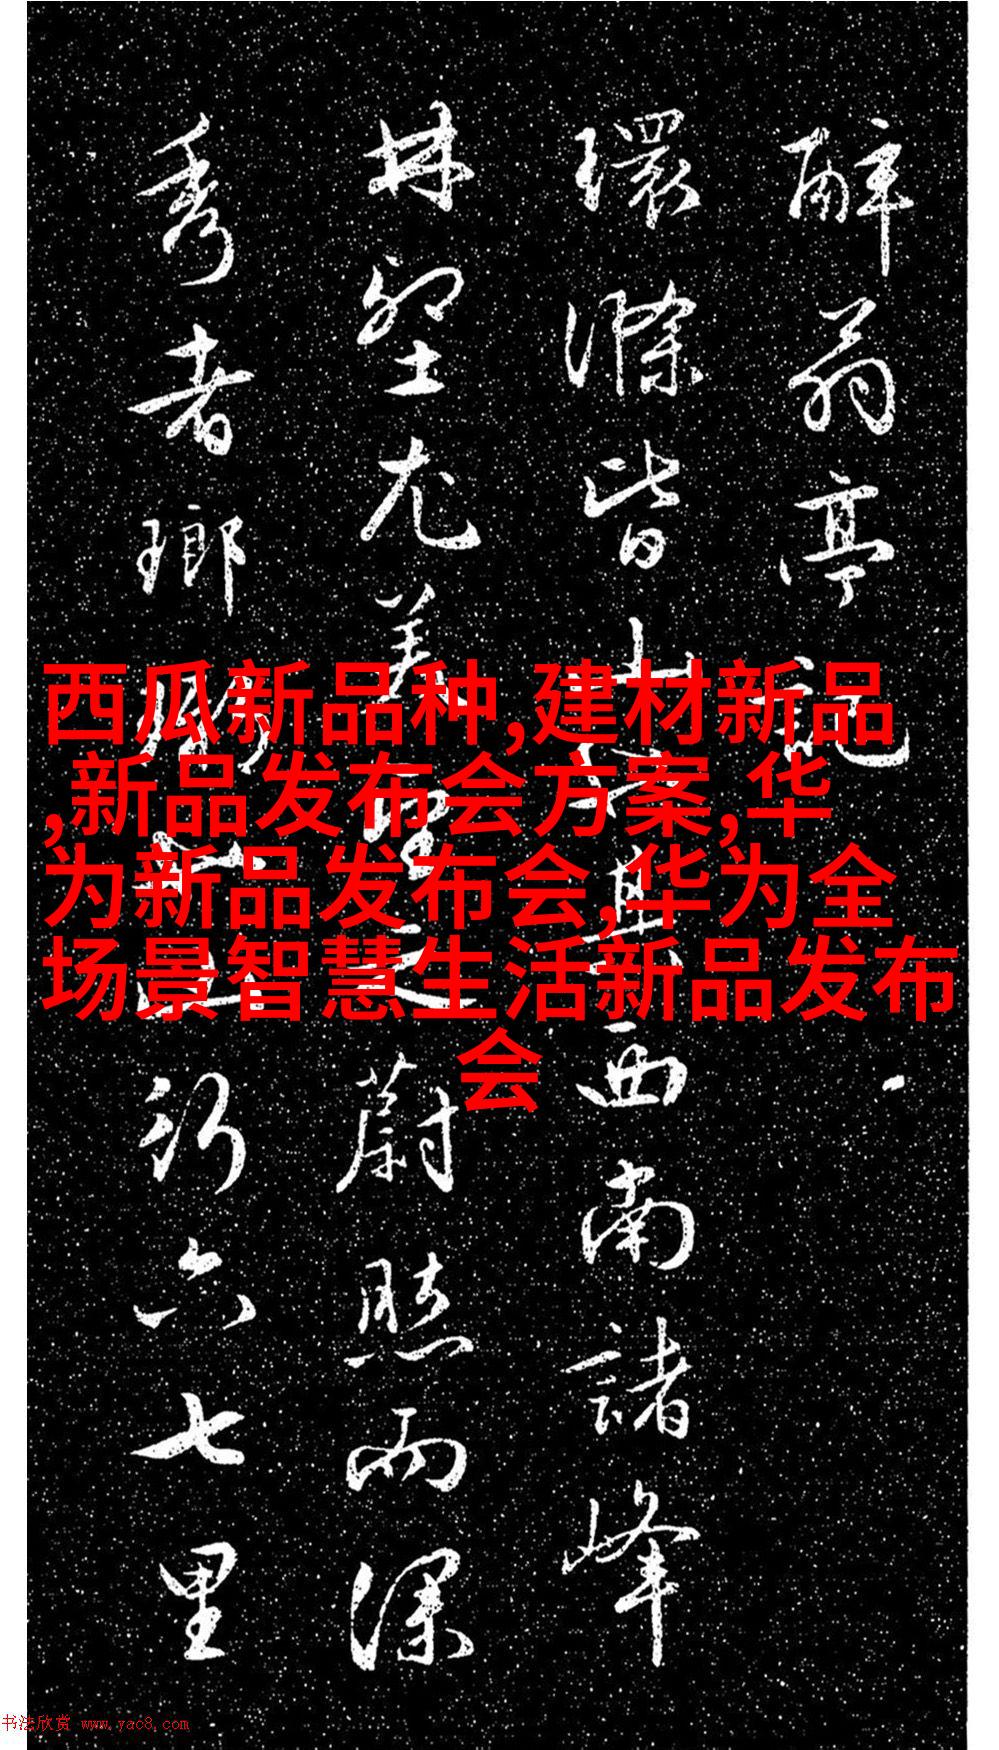 醉翁亭記
環滁皆山其西南諸峰
林壑尤美望之蔚然而深
秀者瑯琊行六七里
西瓜新品种,建材新品
,新品发布会方案,华
为新品发布会,华为全
场景智慧生活新品发布
会
书法欣赏 www.yac8.com